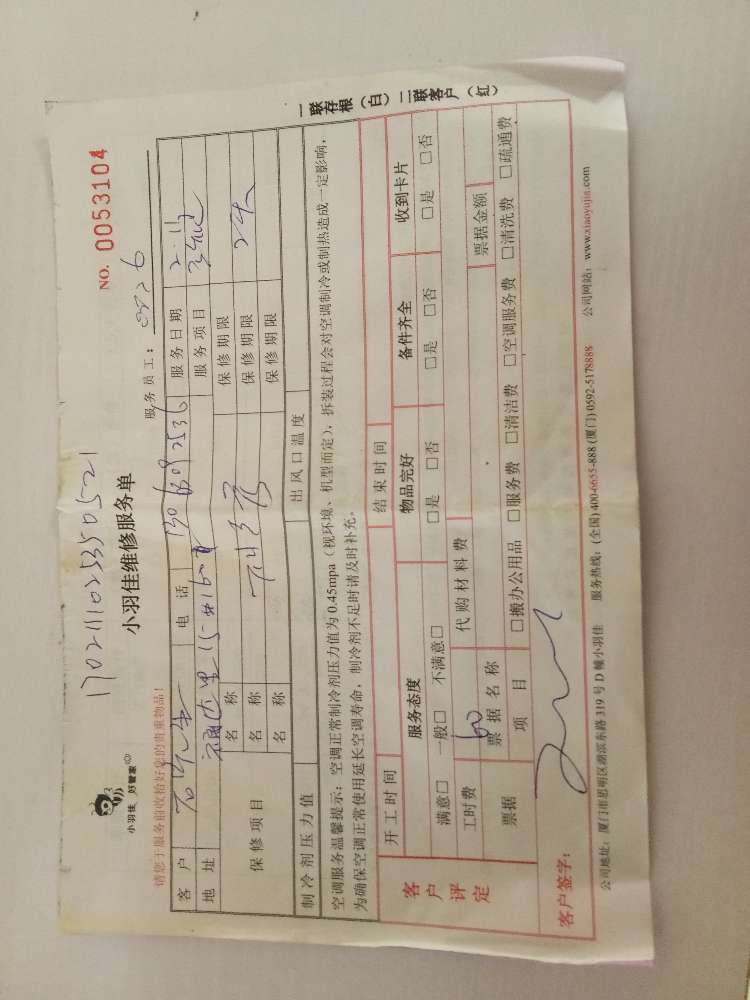 17021110253350521
小羽佳 好管家
小羽佳维修服务单
NO. 0053104
请您于服务前收拾好您的贵重物品！
服务员工： 0826
客户 电话 13063092536 服务日期 2.11
地址 服务项目
保修项目 名称 保修期限
名称 保修期限
名称 保修期限
制冷剂压力值 出风口温度
空调服务温馨提示：空调正常制冷剂压力值为0.45mpa（视环境、机型而定），拆装过程会对空调制冷或制热造成一定影响，
为确保空调正常使用延长空调寿命，制冷剂不足时请及时补充。
开工时间 结束时间
客户评定 服务态度 物品完好 备件齐全 收到卡片
满意□ 一般□ 不满意□ □是 □否 □是 □否 □是 □否
工时费 60 代购材料费
票据 票据名称 票据金额
项目 □搬办公用品 □服务费 □清洁费 □空调服务费 □清洗费 □疏通费
客户签字：
公司地址：厦门市思明区湖滨东路319号D幢小羽佳 服务热线：(全国) 400-6655-888 (厦门) 0592-5178888 公司网站：www.xiaoyujia.com
一联存根（白）二联客户（红）